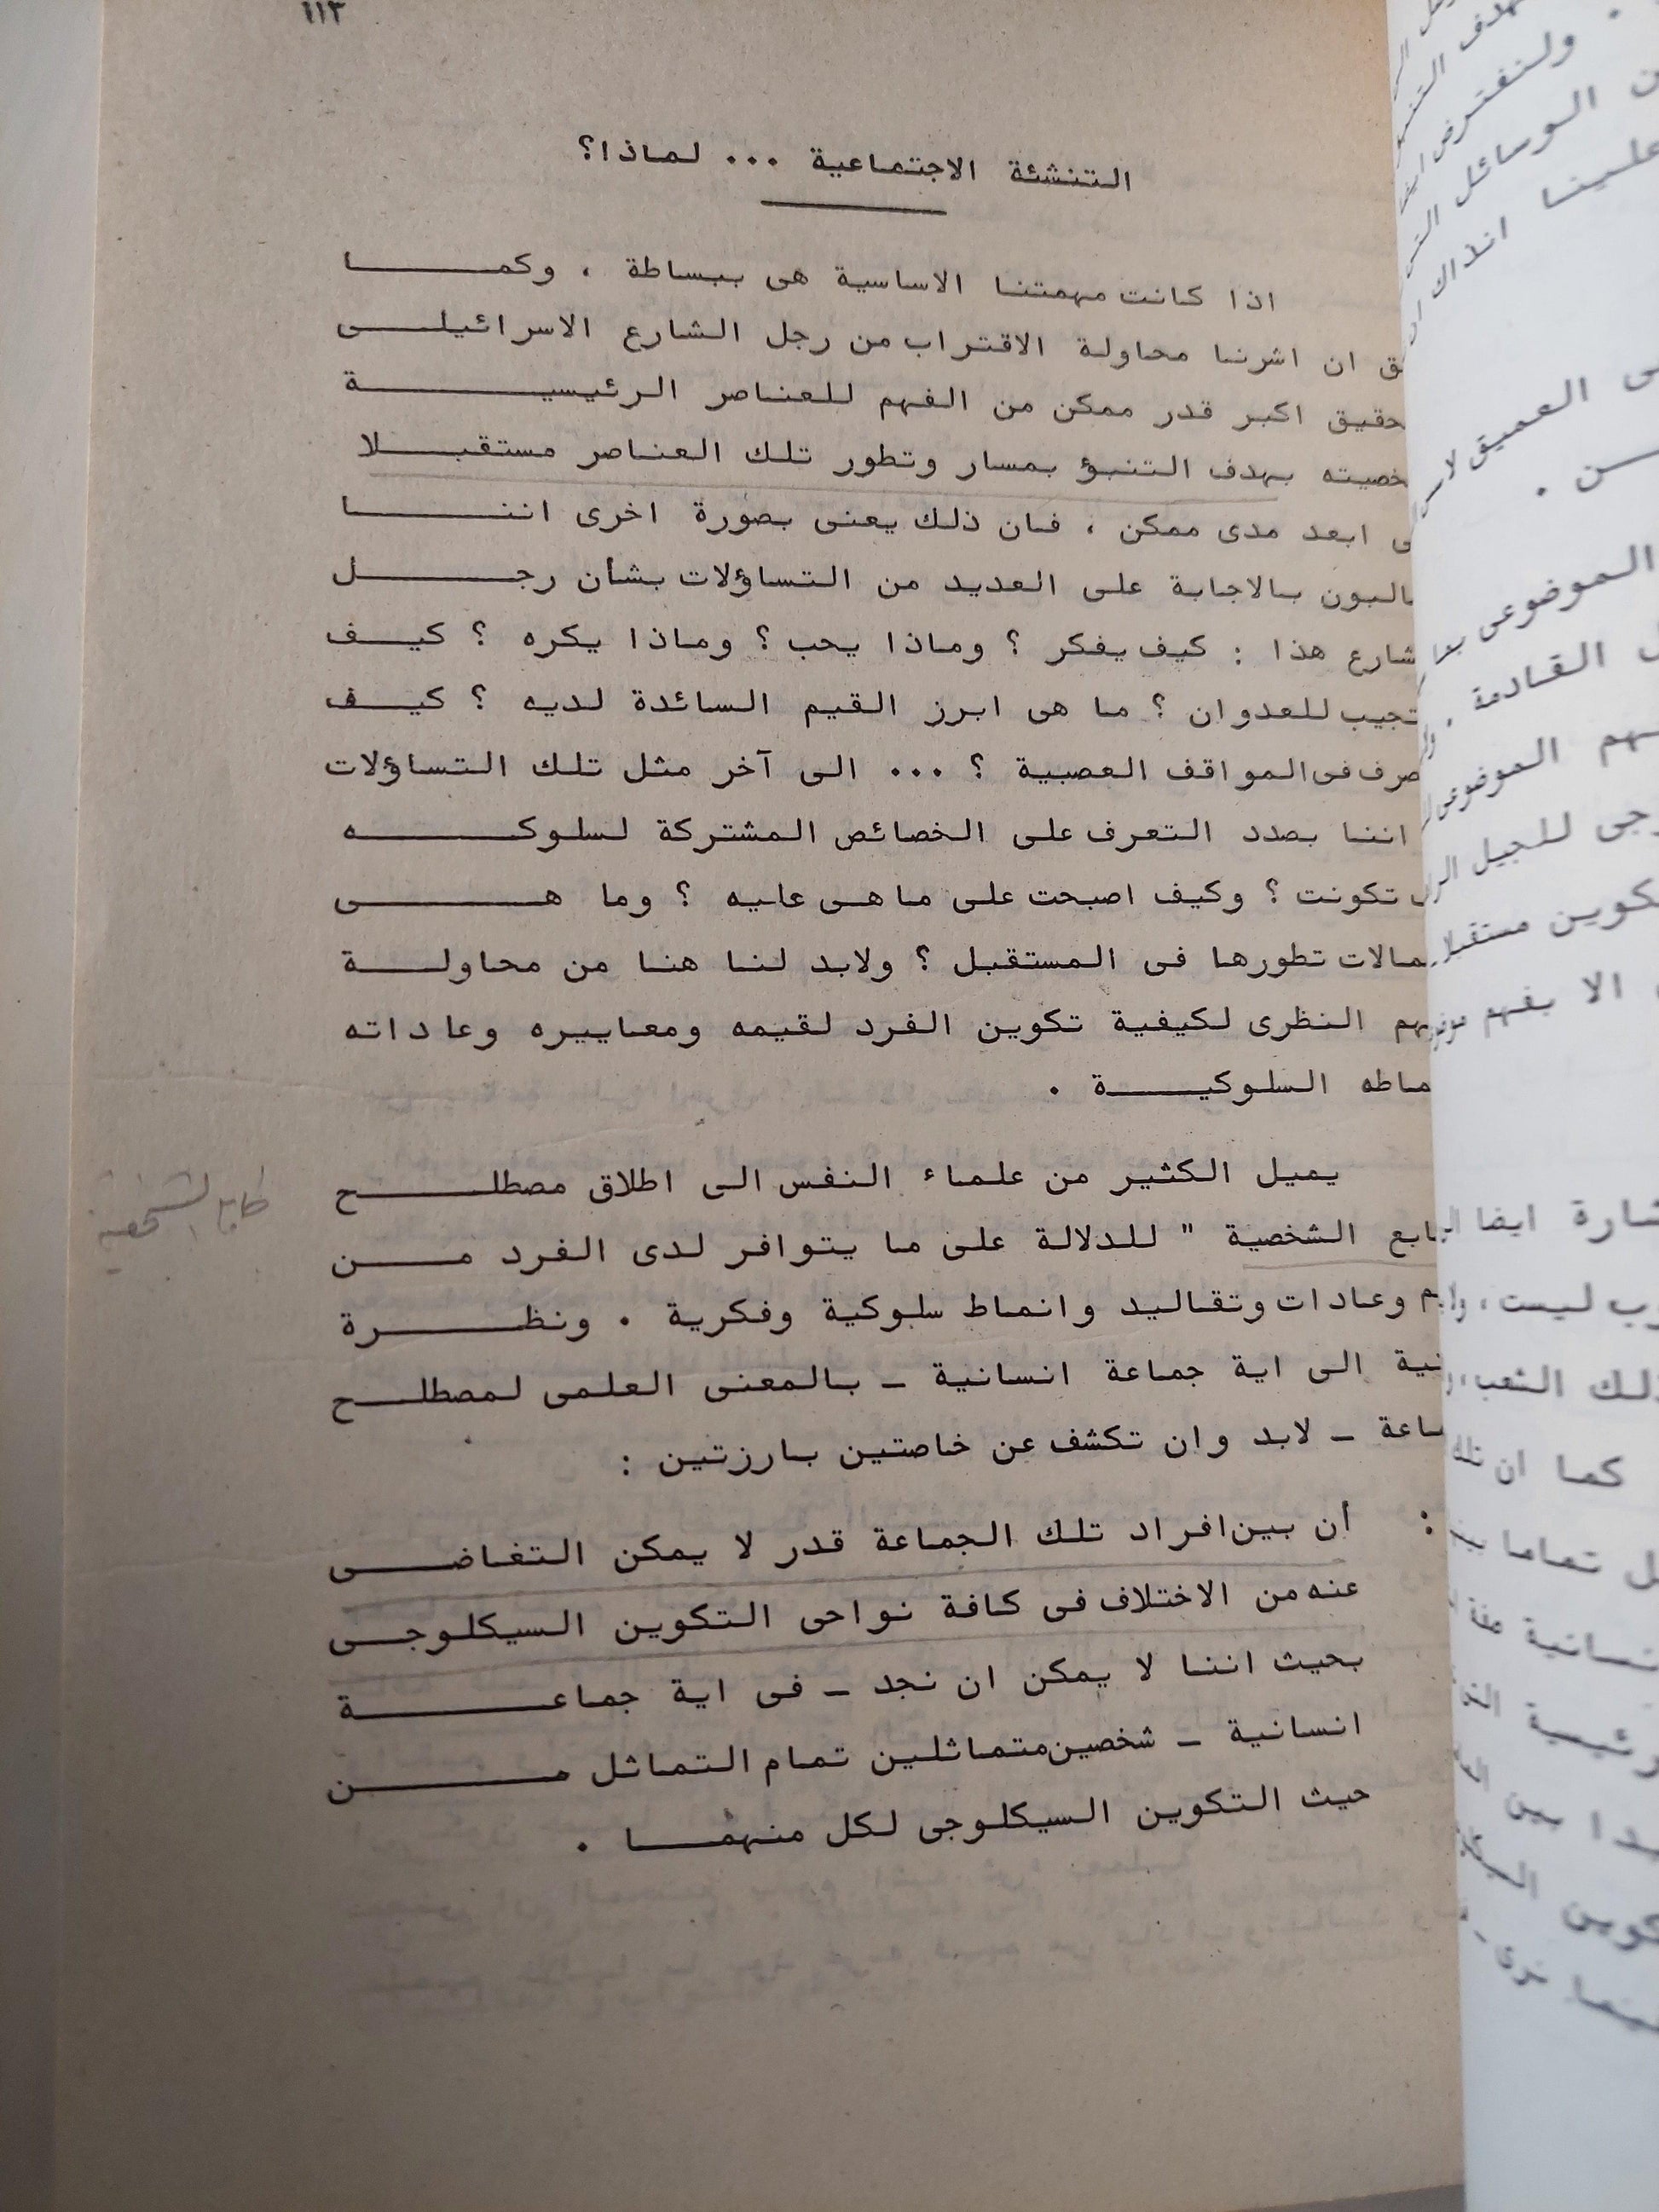 ١١٣
التنشئة الاجتماعية ... لماذا؟
اذا كانت مهمتنا الاساسية هى ببساطة ، وكما
ان اشرنا محاولة الاقتراب من رجل الشارع الاسرائيلى
اكبر قدر ممكن من الفهم للعناصر الرئيسية
بهدف التنبؤ بمسار وتطور تلك العناصر مستقبلا
ابعد مدى ممكن ، فان ذلك يعنى بصورة اخرى اننا
بالاجابة على العديد من التساؤلات بشأن رجل
هذا : كيف يفكر ؟ وماذا يحب ؟ وماذا يكره ؟ كيف
للعدوان ؟ ما هى ابرز القيم السائدة لديه ؟ كيف
فى المواقف العصبية ؟ ... الى آخر مثل تلك التساؤلات
اننا بصدد التعرف على الخصائص المشتركة لسلوكه
تكونت ؟ وكيف اصبحت على ما هى عليه ؟ وما هى
تطورها فى المستقبل ؟ ولابد لنا هنا من محاولة
النظرى لكيفية تكوين الفرد لقيمه ومعاييره وعاداته
السلوكية .
يميل الكثير من علماء النفس الى اطلاق مصطلح
الشخصية " للدلالة على ما يتوافر لدى الفرد من
وعادات وتقاليد وانماط سلوكية وفكرية . ونظرة
الى اية جماعة انسانية - بالمعنى العلمى لمصطلح
- لابد وان تكشف عن خاصتين بارزتين :
: أن بين افراد تلك الجماعة قدر لا يمكن التغاضى
عنه من الاختلاف فى كافة نواحى التكوين السيكلوجى
بحيث اننا لا يمكن ان نجد - فى اية جماعة
انسانية - شخصين متماثلين تمام التماثل من
حيث التكوين السيكلوجى لكل منهما .
طابع الشخصية
ولنفترض
الوسائل
علينا انذاك
العميق
الموضوعى
القادمة
الموضوعى
للجيل
مستقبلا
الا بفهم
ليست ،
الشعب
كما ان
تماما
بين